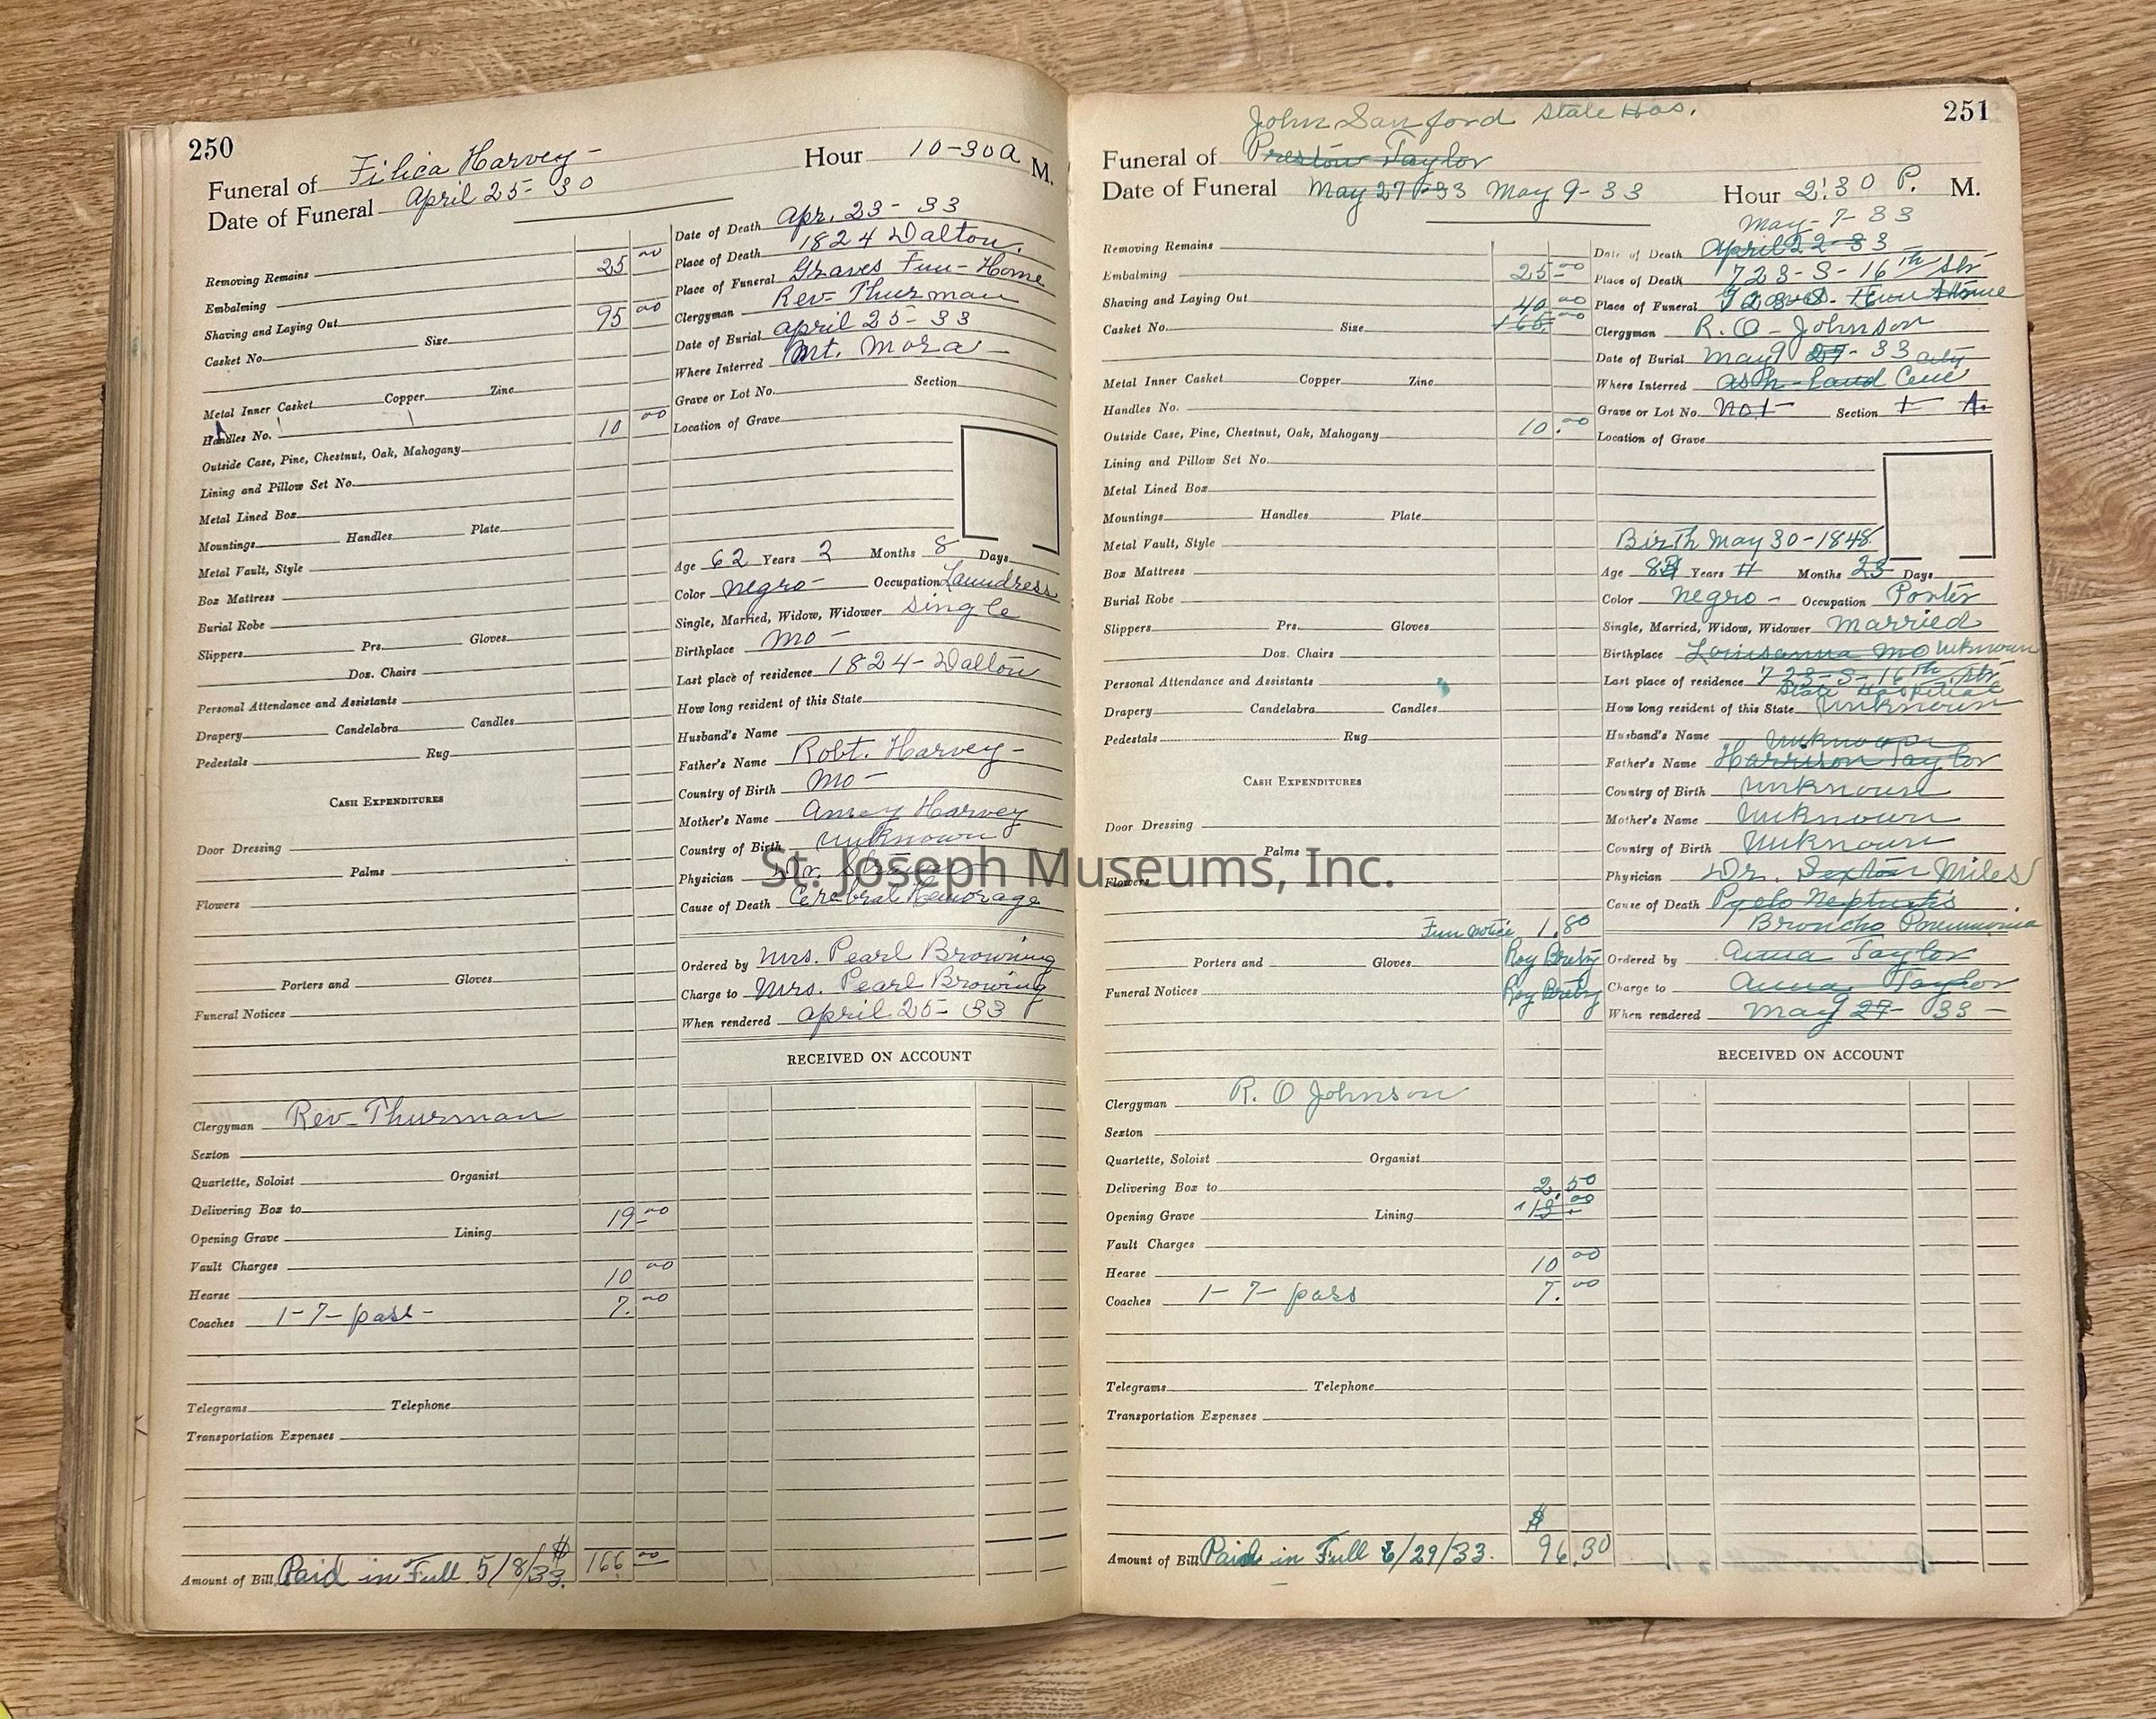 250
Funeral of Filica Harvey -
Hour 10-30 A M.
Date of Funeral April 25- 30
Removing Remains
Embalming 25 00
Shaving and Laying Out
Casket No. Size 95 00
Metal Inner Casket Copper Zinc
Handles No.
Outside Case, Pine, Chestnut, Oak, Mahogany 10 00
Lining and Pillow Set No.
Metal Lined Box
Mountings Handles Plate
Metal Vault, Style
Box Mattress
Burial Robe
Slippers Prs. Gloves
Doz. Chairs
Personal Attendance and Assistants
Drapery Candelabra Candles
Pedestals Rug
CASH EXPENDITURES
Door Dressing
Palms
Flowers
Porters and Gloves
Funeral Notices
Clergyman Rev- Thurman
Sexton
Quartette, Soloist Organist
Delivering Box to
Opening Grave Lining 19 00
Vault Charges
Hearse 10 00
Coaches 1-7-pass- 7. 00
Telegrams Telephone
Transportation Expenses
Amount of Bill Paid in Full 5/8/33. $ 166 00
Date of Death Apr. 23- 33
Place of Death 1824 Dalton.
Place of Funeral Graves Fun- Home
Clergyman Rev- Thurman
Date of Burial April 25- 33
Where Interred Mt. Mora -
Grave or Lot No. Section
Location of Grave
Age 62 Years 2 Months 8 Days
Color negro- Occupation Laundress
Single, Married, Widow, Widower single
Birthplace Mo -
Last place of residence 1824- Dalton
How long resident of this State
Husband's Name
Father's Name Robt. Harvey -
Country of Birth Mo -
Mother's Name Amey Harvey
Country of Birth Unknown
Physician Dr.
Cause of Death Cerebral Hemorage
Ordered by Mrs. Pearl Browning
Charge to Mrs. Pearl Browing
When rendered April 25- 33
RECEIVED ON ACCOUNT
251
John Sanford State Hos.
Funeral of Preston Taylor
Date of Funeral May 27-33 May 9-33 Hour 2:30 P. M.
Removing Remains
Embalming 25 00
Shaving and Laying Out 40 00
Casket No. Size 165 00
Metal Inner Casket Copper Zinc
Handles No.
Outside Case, Pine, Chestnut, Oak, Mahogany 10.00
Lining and Pillow Set No.
Metal Lined Box
Mountings Handles Plate
Metal Vault, Style
Box Mattress
Burial Robe
Slippers Prs. Gloves
Doz. Chairs
Personal Attendance and Assistants
Drapery Candelabra Candles
Pedestals Rug
CASH EXPENDITURES
Door Dressing
Palms
Flowers
Fun notice 1.80
Porters and Gloves Roy
Funeral Notices Roy
Clergyman R. O Johnson
Sexton
Quartette, Soloist Organist
Delivering Box to 2.50
Opening Grave Lining
Vault Charges
Hearse 10 00
Coaches 1-7-pass 7. 00
Telegrams Telephone
Transportation Expenses
Amount of Bill Paid in Full 6/29/33. $ 96.30
May-7-33
Date of Death April 22-33
Place of Death 723-S-16th Str
Place of Funeral Fun Home
Clergyman R. O- Johnson
Date of Burial May 9 27-33
city
Where Interred Ash-Land Cem
Grave or Lot No. Section
Location of Grave
Birth May 30-1848
Age Years 11 Months 23 Days
Color negro - Occupation Porter
Single, Married, Widow, Widower Married
Birthplace Louisanna Mo Unknown
Last place of residence 723-S-16th Str
State Hospital
How long resident of this State Unknown
Husband's Name Unknown
Father's Name Harrison Taylor
Country of Birth Unknown
Mother's Name Unknown
Country of Birth Unknown
Physician Dr. Sexton Miles
Cause of Death Pyelo
Broncho Pneumonia
Ordered by Anna Taylor
Charge to Anna Taylor
When rendered May 9 27- 33 -
RECEIVED ON ACCOUNT
St. Joseph Museums, Inc.